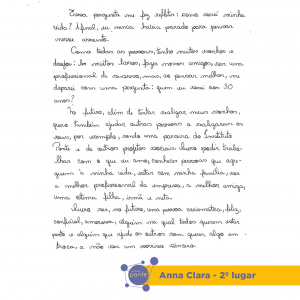 Essa pergunta me fez refletir: como será minha
vida? Afinal, eu nunca havia parado para pensar
nesse assunto.
Como todas as pessoas, tenho muitos sonhos e
desejos: ler muitos livros, fazer novos amigos, ser uma
profissional de sucesso, mas, ao pensar melhor, me
deparei com uma pergunta: quem eu serei aos 30
anos?
No futuro, além de tentar realizar meus sonhos,
quero também ajudar outras pessoas a realizarem os
seus, por exemplo, sendo uma parceira do Instituto
Ponte e de outros projetos sociais. Quero poder traba-
lhar com o que eu amo, conhecer pessoas que agre-
guem à minha vida, estar com minha família, ser
a melhor profissional da empresa, a melhor amiga,
uma ótima filha, irmã e neta.
Quero ser, no futuro, uma pessoa carismática, feliz,
confiável, amorosa, alguém na qual todos querem estar
perto e alguém que ajude os outros sem querer algo em
troca, a não ser um sorriso sincero.
ponte
Anna Clara - 2º lugar